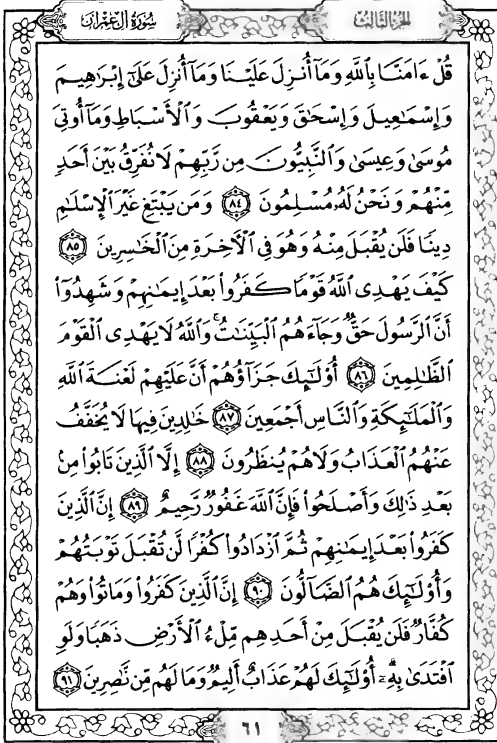 سُورَةُ آلِ عِمْرَانَ
الجُزءُ الثَّالِثُ
قُلْ ءَامَنَّا بِٱللَّهِ وَمَآ أُنزِلَ عَلَيْنَا وَمَآ أُنزِلَ عَلَىٰٓ إِبْرَٰهِيمَ
وَإِسْمَٰعِيلَ وَإِسْحَٰقَ وَيَعْقُوبَ وَٱلْأَسْبَاطِ وَمَآ أُوتِيَ
مُوسَىٰ وَعِيسَىٰ وَٱلنَّبِيُّونَ مِن رَّبِّهِمْ لَا نُفَرِّقُ بَيْنَ أَحَدٍ
مِّنْهُمْ وَنَحْنُ لَهُۥ مُسْلِمُونَ ٨٤ وَمَن يَبْتَغِ غَيْرَ ٱلْإِسْلَٰمِ
دِينًا فَلَن يُقْبَلَ مِنْهُ وَهُوَ فِى ٱلْءَاخِرَةِ مِنَ ٱلْخَٰسِرِينَ ٨٥
كَيْفَ يَهْدِى ٱللَّهُ قَوْمًا كَفَرُوا۟ بَعْدَ إِيمَٰنِهِمْ وَشَهِدُوٓا۟
أَنَّ ٱلرَّسُولَ حَقٌّ وَجَآءَهُمُ ٱلْبَيِّنَٰتُ ۚ وَٱللَّهُ لَا يَهْدِى ٱلْقَوْمَ
ٱلظَّٰلِمِينَ ٨٦ أُو۟لَٰٓئِكَ جَزَآؤُهُمْ أَنَّ عَلَيْهِمْ لَعْنَةَ ٱللَّهِ
وَٱلْمَلَٰٓئِكَةِ وَٱلنَّاسِ أَجْمَعِينَ ٨٧ خَٰلِدِينَ فِيهَا لَا يُخَفَّفُ
عَنْهُمُ ٱلْعَذَابُ وَلَا هُمْ يُنظَرُونَ ٨٨ إِلَّا ٱلَّذِينَ تَابُوا۟ مِنۢ
بَعْدِ ذَٰلِكَ وَأَصْلَحُوا۟ فَإِنَّ ٱللَّهَ غَفُورٌ رَّحِيمٌ ٨٩ إِنَّ ٱلَّذِينَ
كَفَرُوا۟ بَعْدَ إِيمَٰنِهِمْ ثُمَّ ٱزْدَادُوا۟ كُفْرًا لَّن تُقْبَلَ تَوْبَتُهُمْ
وَأُو۟لَٰٓئِكَ هُمُ ٱلضَّآلُّونَ ٩٠ إِنَّ ٱلَّذِينَ كَفَرُوا۟ وَمَاتُوا۟ وَهُمْ
كُفَّارٌ فَلَن يُقْبَلَ مِنْ أَحَدِهِم مِّلْءُ ٱلْأَرْضِ ذَهَبًا وَلَوِ
ٱفْتَدَىٰ بِهِۦٓ ۗ أُو۟لَٰٓئِكَ لَهُمْ عَذَابٌ أَلِيمٌ وَمَا لَهُم مِّن نَّٰصِرِينَ ٩١
٦١